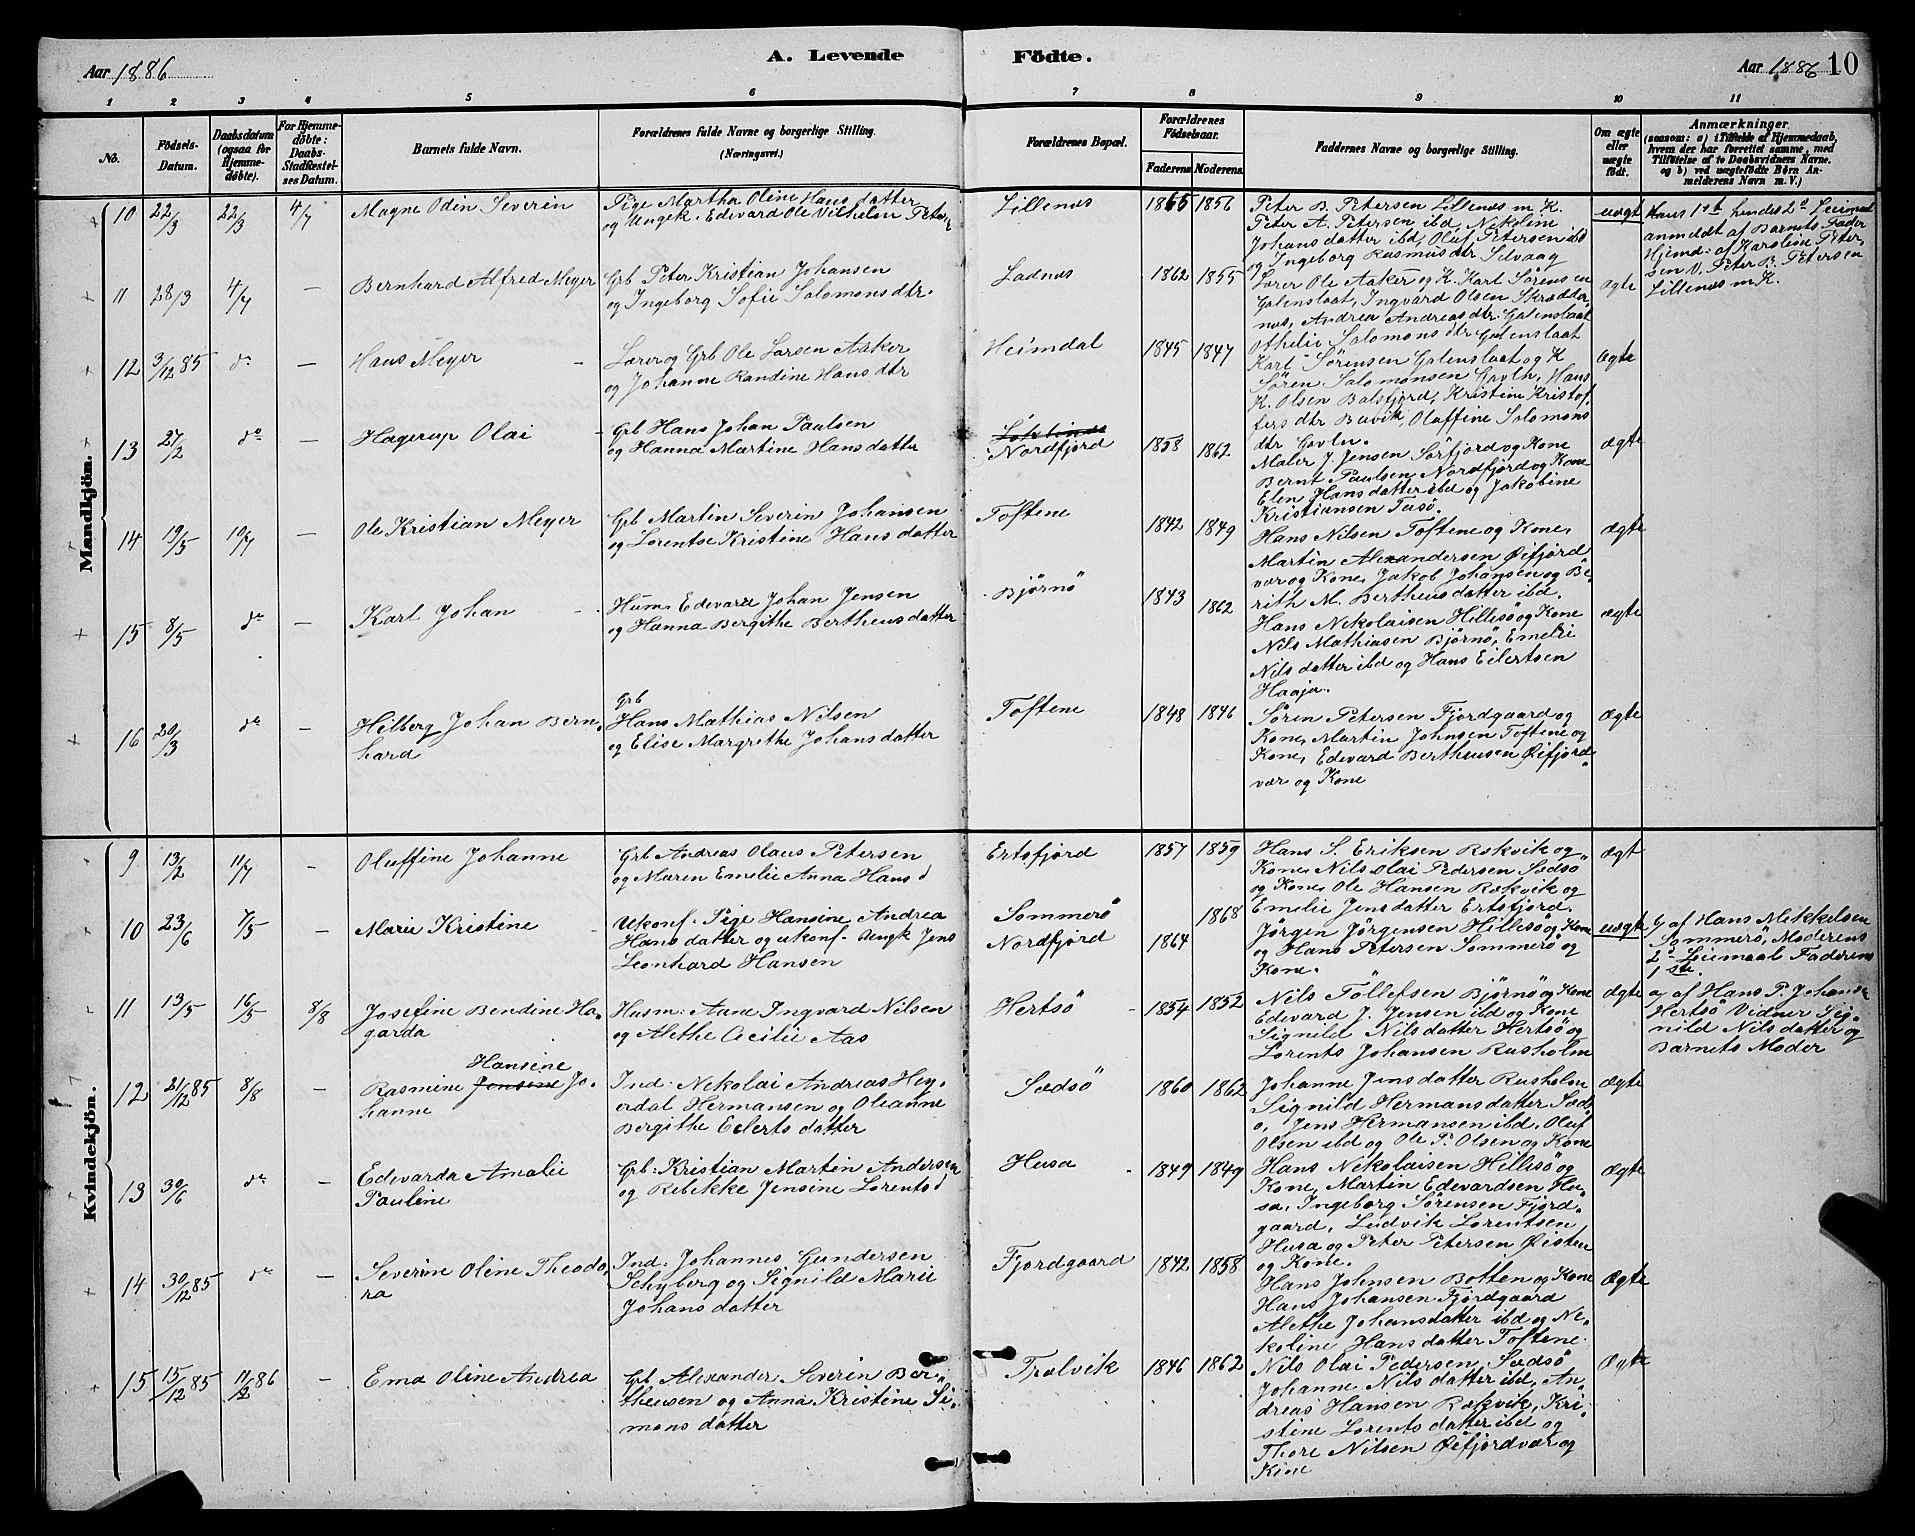 Aar 1886
A. Levende
Födte.
Aar 1886 10
1 2 3 4 5 6 7 8 9 10 11
No.
Födsels-
Datum.
Daabsdatum
(ogsaa for
Hjemme-
döbte).
For Hjemme-
döbte:
Daabs-
Stadfæstel-
ses Datum.
Barnets fulde Navn.
Forældrenes fulde Navne og borgerlige Stilling.
(Næringsvei.)
Forældrenes Bopæl.
Forældrenes
Födselsaar.
Faderens. Moderens.
Faddernes Navne og borgerlige Stilling.
Om ægte
eller
uægte
födt.
Anmærkninger.
(saasom: a) i Tilfælde af Hjemmedaab,
hvem der har forrettet samme, med
Tilföielse af to Daabsvidners Navne.
og b) ved uægtefödte Börn An-
melderens Navn m. V.)
Mandkjön.
10 22/3 22/3 4/7 Magne Odin Severin
Pige Martha Oline Hans datter
og Ungk. Edevard Ole Vilhelm Peters
Lillenes 1865 1856
Peter B. Petersen Lillenes m. K.
Peter A. Petersen ibd, Nekoline
Johans datter ibd, Oluf Petersen ibd
og Ingeborg Rasmusdtr Selvaag
uægt
Hans 1st hendes 2d Leiermaal
anmeldt af Barnets Fader
Hjemd: af Karoline Peter,
sen V. Peter B. Petersen
Lillenes m K.
11 28/3 4/7 — Bernhard Alfred Meyer
Grb Peter Kristian Johansen
og Ingeborg Sofie Salomons dtr.
Ladnes 1862 1855
Lærer Ole Aaker og K. Karl Sörensen
Galenslaat, Ingvard Olsen Skrædder
nes, Andrea Andreas dtr. Galenslaat
Othelie Salomons dtr Galenslaat
ægte
12 3/12 85 do — Hans Meyer
Lærer og Grb Ole Larsen Aaker
og Johanne Randine Hans dtr
Heimdal 1845 1847
Karl Sörensen Galenslaat og K
Sören Salomonsen Gavln, Hans
K. Olsen Balsfjord, Kristine Kristof
fers dtr Buvik, Oluffine Salomons
dtr Gavln.
ægte
13 27/2 do — Hagerup Olai
Grb Hans Johan Paulsen
og Hanna Martine Hans datter
Nordfjord 1858 1862
Maler J. Jensen Sörfjord og Kone
Bernt Paulsen, Nordfjord og Kone
Elen Hans datter ibd og Jakobine
Kristiansen Tusö.
ægte
14 19/5 10/7 — Ole Kristian Meyer
Grb Martin Severin Johansen
og Lorentse Kristine Hans datter
Toftene 1842 1849
Hans Nilsen Toftene og Kone,
Martin Alexandersen Øifjord
vær og Kone, Jakob Johansen og Be
rith M. Bertheusdatter ibd.
ægte
15 8/5 do — Karl Johan
Husm. Edevard Johan Jensen
og Hanna Bergithe Bertheus datter
Bjørnö 1843 1862
Hans Nekolaisen Hillesö og Kone
Nils Mathiasen Björnö, Emelie
Nils datter ibd og Hans Eilertsen
Haaja.
ægte
16 20/3 do — Hilberg Johan Bern,
hard
Grb
Hans Mathias Nilsen
og Elise Margrethe Johans datter
Toftene 1848 1846
Sören Petersen Fjordgaard og
Kone, Martin Johnsen Toftene og
Kone, Edevard Bertheusen Øifjord
vær og Kone
ægte
Kvindekjön.
9 13/2 11/7 — Oluffine Johanne
Grb Andreas Olaus Petersen
og Maren Emelie Anna Hans d
Ertsfjord 1857 1859
Hans S. Eriksen Rækvik og
Kone, Nils Olai Pedersen Sædsö
og Kone, Ole Hansen Rækvik og
Emelie Jensdatter Ertsfjord.
ægt
10 23/6 7/5 — Marie Kristine
Ukonf. Pige Hansine Andrea
Hans datter og ukonf. Ungk Jens
Leonhard Hansen
Sommerö
Nordfjord 1864 1868
Jörgen Jörgensen Hillesö og Kone
og Hans Petersen Sommerö og
Kone.
uægte
b/ af Hans Mikkelsen
Sommerö, Moderens
2d Leiermaal Faderens
1ste.
11 13/5 16/5 8/8 Josefine Bendine Ha,
garda
Husm. Aane Ingvard Nilsen
og Alethe Cecilie Aas
Hertsö 1854 1852
Nils Tollefsen Bjørnö og Kone
Edevard J. Jensen ibd og Kone
Signild Nilsdatter Hertsö og
Lorents Johansen Rusholm
ægte
a/ af Hans P. Johans
Hertsö Vidner Sig,
nild Nils datter og
Barnets Moder
12 21/12 85 8/8 — Rasmine Jensine Hansine Jo,
hanne
Ind: Nekolai Andreas Hey,
erdal Hermansen og Oleanne
Bergithe Eilerts datter
Sædsö 1860 1862
Johanne Jens datter Rusholm
Signild Hermans datter Sæds
ö, Jens Hermansen ibd. Oluf
Olsen ibd og Ole P. Olsen og Kone
ægte
13 30/6 do — Edevarda Amalie
Pauline
Grb: Kristian Martin Andersen
og Rebekke Jensine Lorents d
Husa 1849 1849
Hans Nekolaisen Hillesö og
Kone, Martin Edevardsen Hu,
sa, Ingeborg Sörensen Fjord,
gaard, Ludvik Lorentsen,
Husa og Peter Petersen Øisten
og Kone.
ægte
14 30/12 85 do — Severine Oline Theodo,
ra
Ind. Johannes Gundersen
Schyberg og Signild Marie
Johans datter
Fjordgaard 1842 1858
Hans Johnsen Botten og Kone
Hans Johansen Fjordgaard
Alethe Johansdatter ibd og Ne,
koline Hans datter Toftene.
ægte
15 15/12 85 11/2 86 — Ema Oline Andrea
Grb Alexander Severin Ber,
theusen og Anna Kristine Si,
mons datter
Trælvik 1846 1862
Nils Olai Pedersen, Sædsö
Johanne Nils datter ibd, An,
dreas Hansen Rækvik, Kri,
stine Lorents datter ibd og
Thore Nilsen Øifjordvær og
Kone
ægte